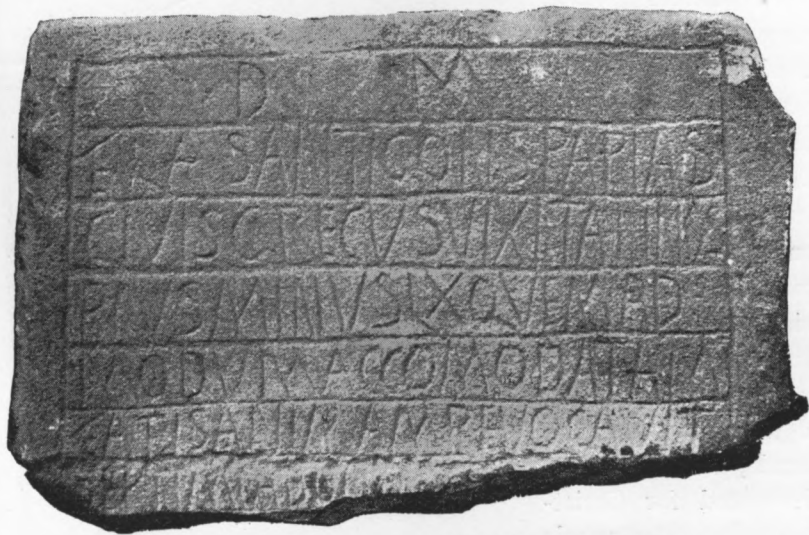 D M
FLAS ANTIGONS PAPIAS
CIVIS GRECVS VIXIT ANNOS
PLVS MINVS LX QVEM AD
MODVM ACCOMODATAM
FATIS ANIMAM REVOCAVIT